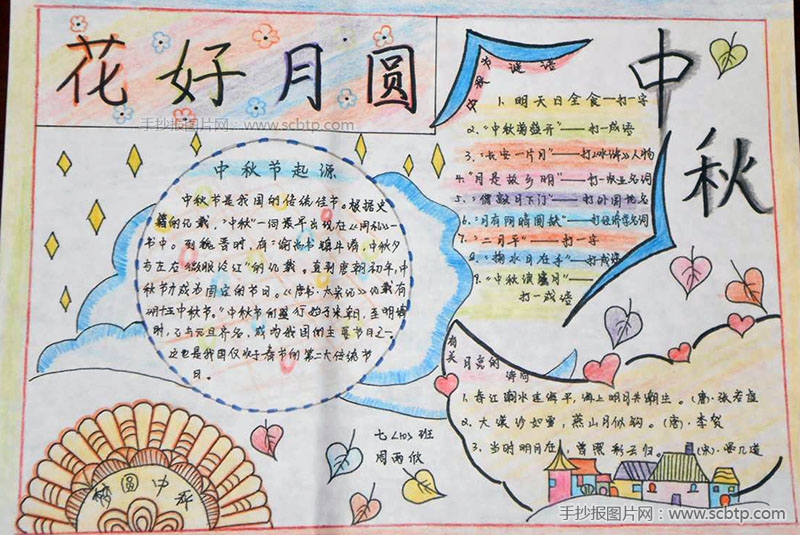 花好月圆
手抄报图片网：www.scbtp.com
中秋
中秋节谜语
1. 明天日全食—打一字
2. "中秋菊盛开"——打一成语
3. "长安一片月"——打《水浒》人物
4. "月是故乡明"——打一
5. "偶敲月下门"——打外国地名
6. "月有阴晴圆缺"——打经济学名词
7. "二月平"——打一字
8. "掬水月在手"——打一成语
9. "中秋度蜜月"——
打一成语
中秋节起源
中秋节是我国的传统佳节。根据史
籍的记载，"中秋"一词最早出现在《周礼》一
书中。到魏晋时，有"谕尚书镇牛渚，中秋夕
与左右微服泛江"的记载。直到唐朝初年，中
秋节才成为固定的节日。《唐书·太宗记》记载有
"中秋节"的盛行始于宋朝，至明清
时，已与元旦齐名，成为我国的主要节日之一。
这也是我国仅次于春节的第二大传统节
日。
有关月亮的诗句
1. 春江潮水连海平，海上明月共潮生。(唐)张若虚
2. 大漠沙如雪，燕山月似钩。(唐)李贺
3. 当时明月在，曾照彩云归。(宋)晏几道
七<10>班
周雨欣
圆中秋
手抄报图片网：www.scbtp.com